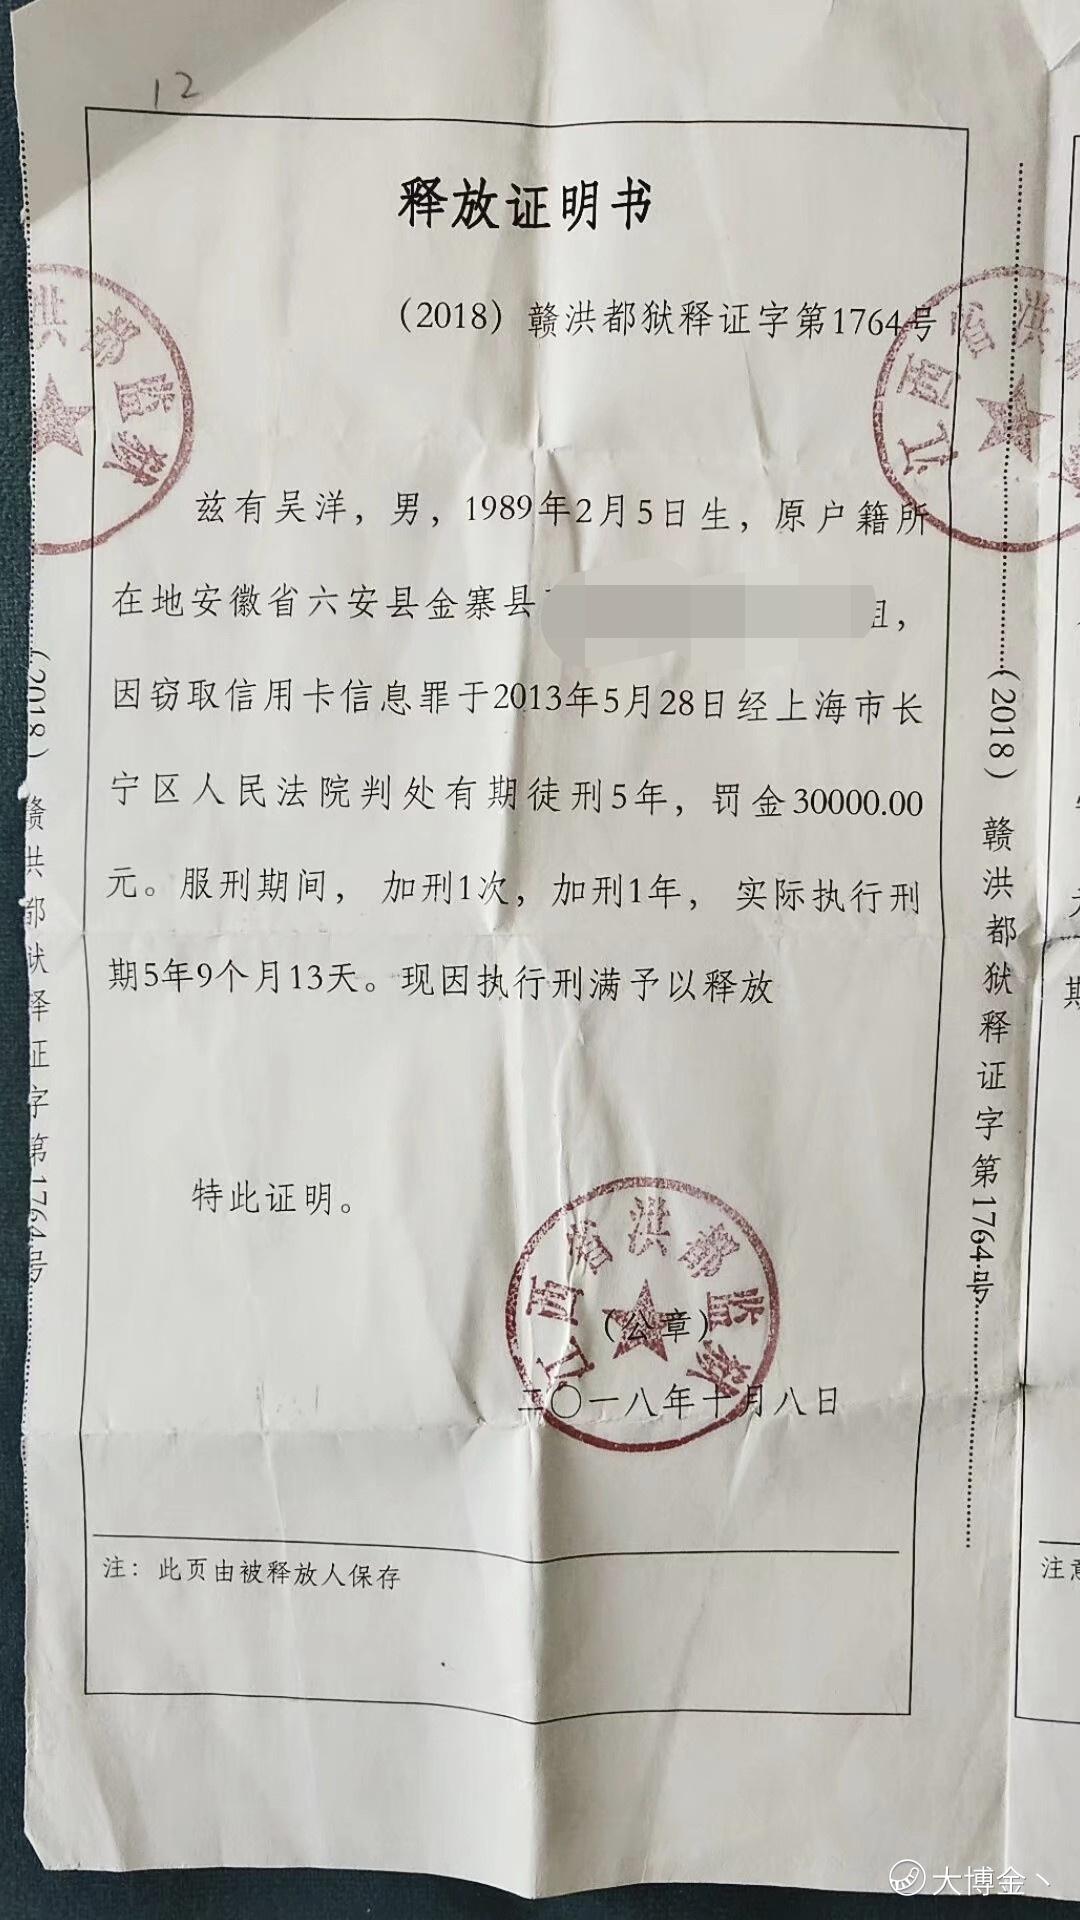 12
释放证明书
（2018）赣洪都狱释证字第1764号
兹有吴洋，男，1989年2月5日生，原户籍所
在地安徽省六安县金寨县
组，
因窃取信用卡信息罪于2013年5月28日经上海市长
宁区人民法院判处有期徒刑5年，罚金30000.00
元。服刑期间，加刑1次，加刑1年，实际执行刑
期5年9个月13天。现因执行刑满予以释放
特此证明。
江西省洪都监狱
（公章）
二〇一八年十月八日
注：此页由被释放人保存
洪都监狱
江西省洪都
（2018）赣洪都狱释证字第1764号
（2018）赣洪都狱释证字第1764号
期
注意
大博金丶